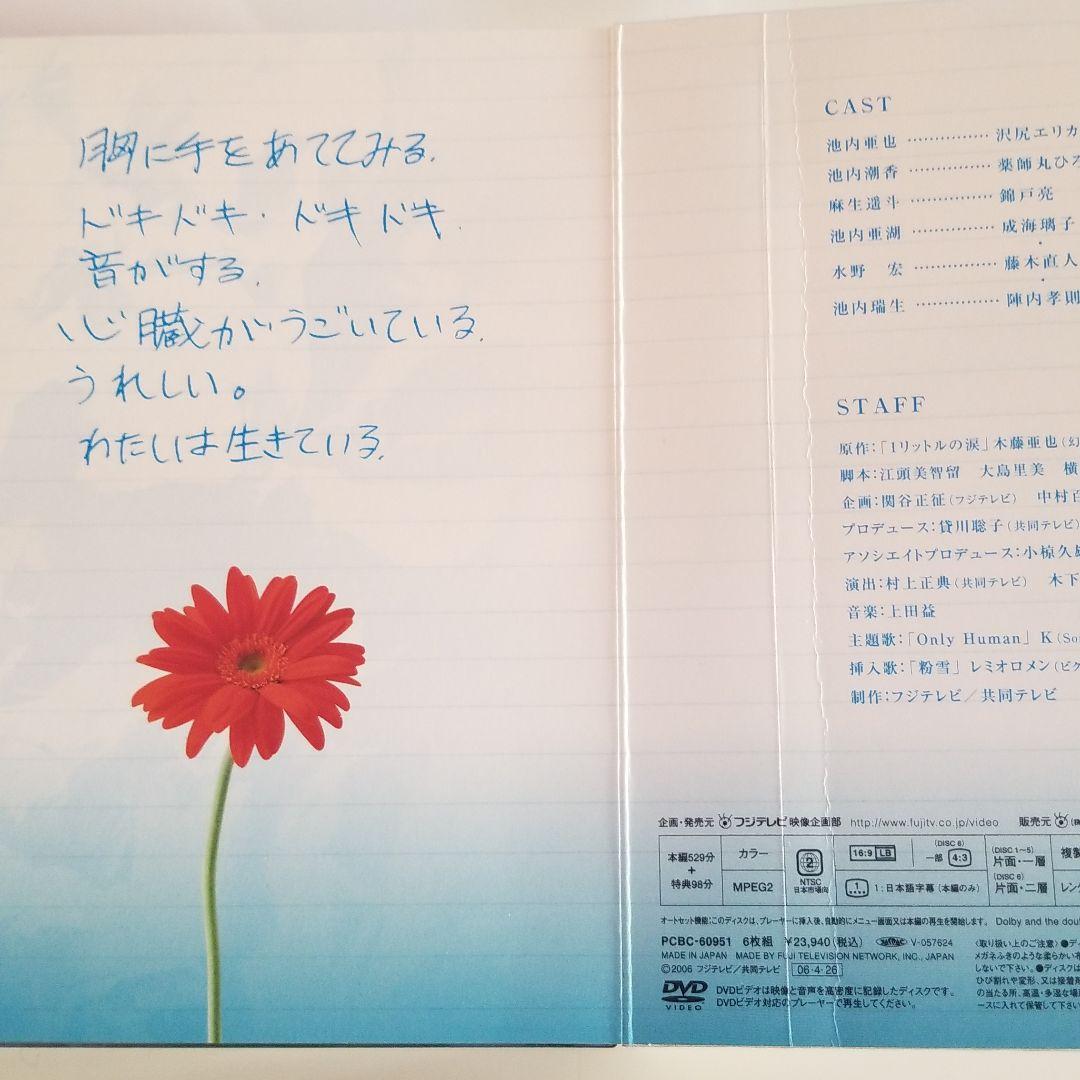 胸に手をあててみる.
ドキドキ・ドキドキ.
音がする.
心臓がうごいている.
うれしい。
わたしは生きている.
CAST
池内亜也 …………… 沢尻エリカ
池内潮香 …………… 薬師丸ひろ
麻生遥斗 …………… 錦戸亮
池内亜湖 …………… 成海璃子
水野 宏 …………… 藤木直人
池内瑞生 …………… 陣内孝則
STAFF
原作：「1リットルの涙」木藤亜也（幻
脚本：江頭美智留 大島里美 横
企画：関谷正征（フジテレビ） 中村百
プロデュース：貸川聡子（共同テレビ）
アソシエイトプロデュース：小椋久雄
演出：村上正典（共同テレビ） 木下
音楽：上田益
主題歌：「Only Human」K（So
挿入歌：「粉雪」レミオロメン（ビク
制作：フジテレビ／共同テレビ
企画・発売元 フジテレビ映像企画部 http://www.fujitv.co.jp/video 販売元
本編529分
+
特典98分
カラー
MPEG2
2
NTSC
日本市場向
16:9 LB
(DISC 6)
一部 4:3
1:日本語字幕（本編のみ）
(DISC 1~5)
片面・一層
(DISC 6)
片面・二層
複製
レン
オートセット機能:このディスクは、プレーヤーに挿入後、自動的にメニュー画面又は本編の再生を開始します。 Dolby and the dou
PCBC-60951 6枚組 ¥23,940（税込） V-057624
MADE IN JAPAN MADE BY FUJI TELEVISION NETWORK, INC., JAPAN
©2006 フジテレビ/共同テレビ 06・4・26
DVD VIDEO
DVDビデオは映像と音声を高密度に記録したディスクです。
DVDビデオ対応のプレーヤーで再生してください。
〈取り扱い上のご注意〉●デ
メガネふきのような柔らかい布
しないで下さい。●ディスクは
ひび割れや変形、又は接着剤
の当たる所、高温・多湿な場所
ースに入れて保管して下さい